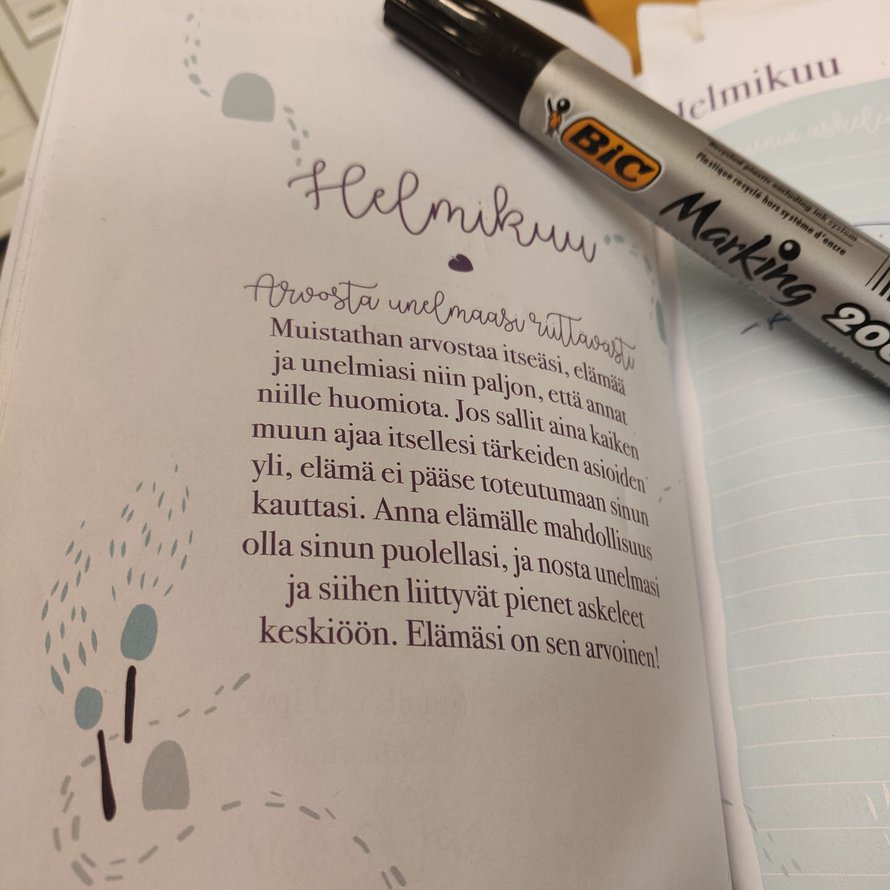 Helmikuu
Arvosta unelmaasi riittävästi
Muistathan arvostaa itseäsi, elämää
ja unelmiasi niin paljon, että annat
niille huomiota. Jos sallit aina kaiken
muun ajaa itsellesi tärkeiden asioiden
yli, elämä ei pääse toteutumaan sinun
kauttasi. Anna elämälle mahdollisuus
olla sinun puolellasi, ja nosta unelmasi
ja siihen liittyvät pienet askeleet
keskiöön. Elämäsi on sen arvoinen!
BIC
Marking
Recycled plastic excluding ink system
Plastique recyclé hors système d'encre
Helmikuu